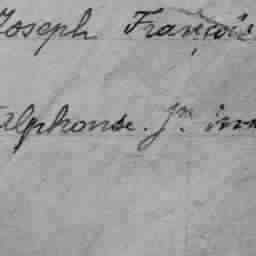 Joseph François
alphonse. Jn.